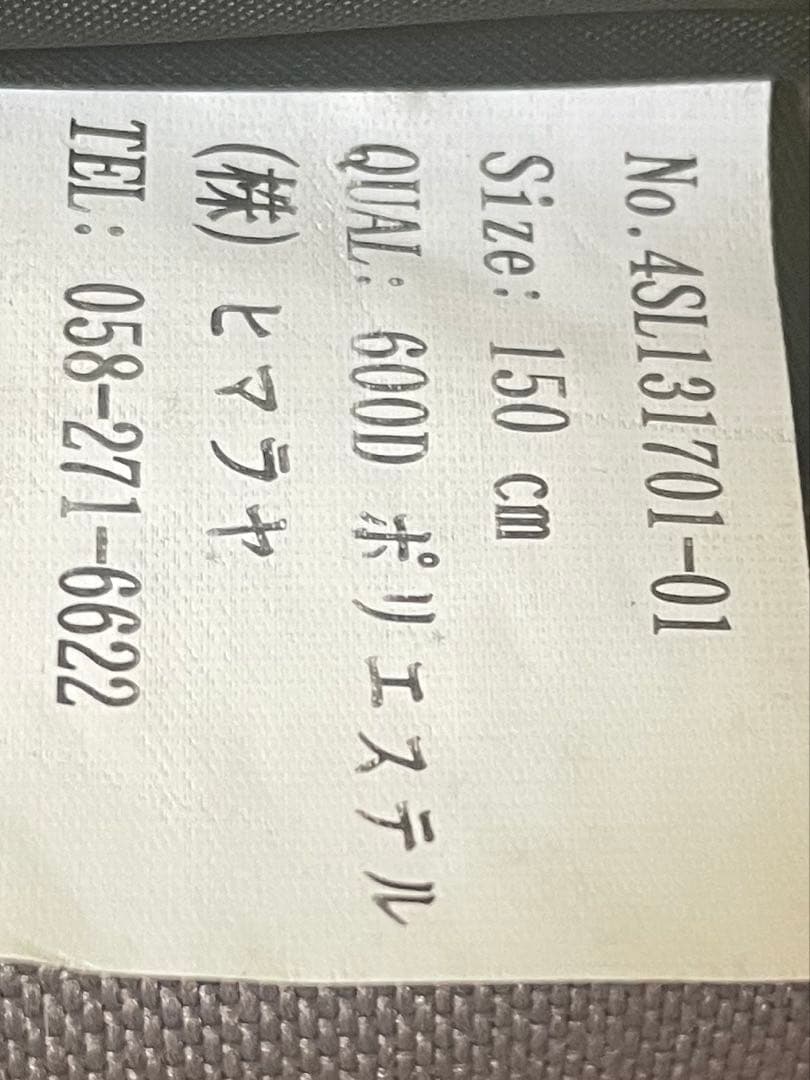 No.4SL131701-01
Size: 150 cm
QUAL: 600D ポリエステル
(株) ヒマラヤ
TEL: 058-271-6622